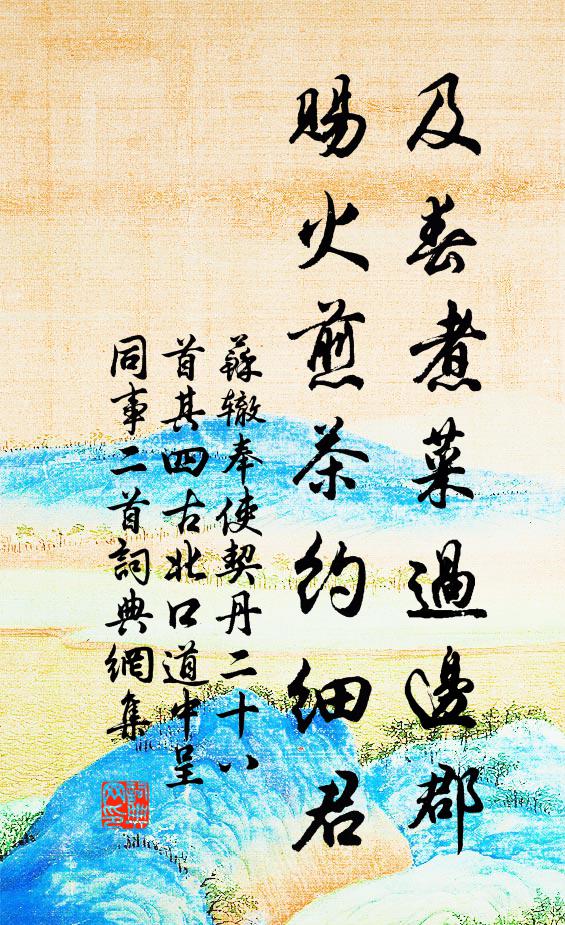 及春煮菜過邊郡
賜火煎茶約細君
蘇轍奉使契丹二十八
首其四古北口道中呈
同事二首詞典網集